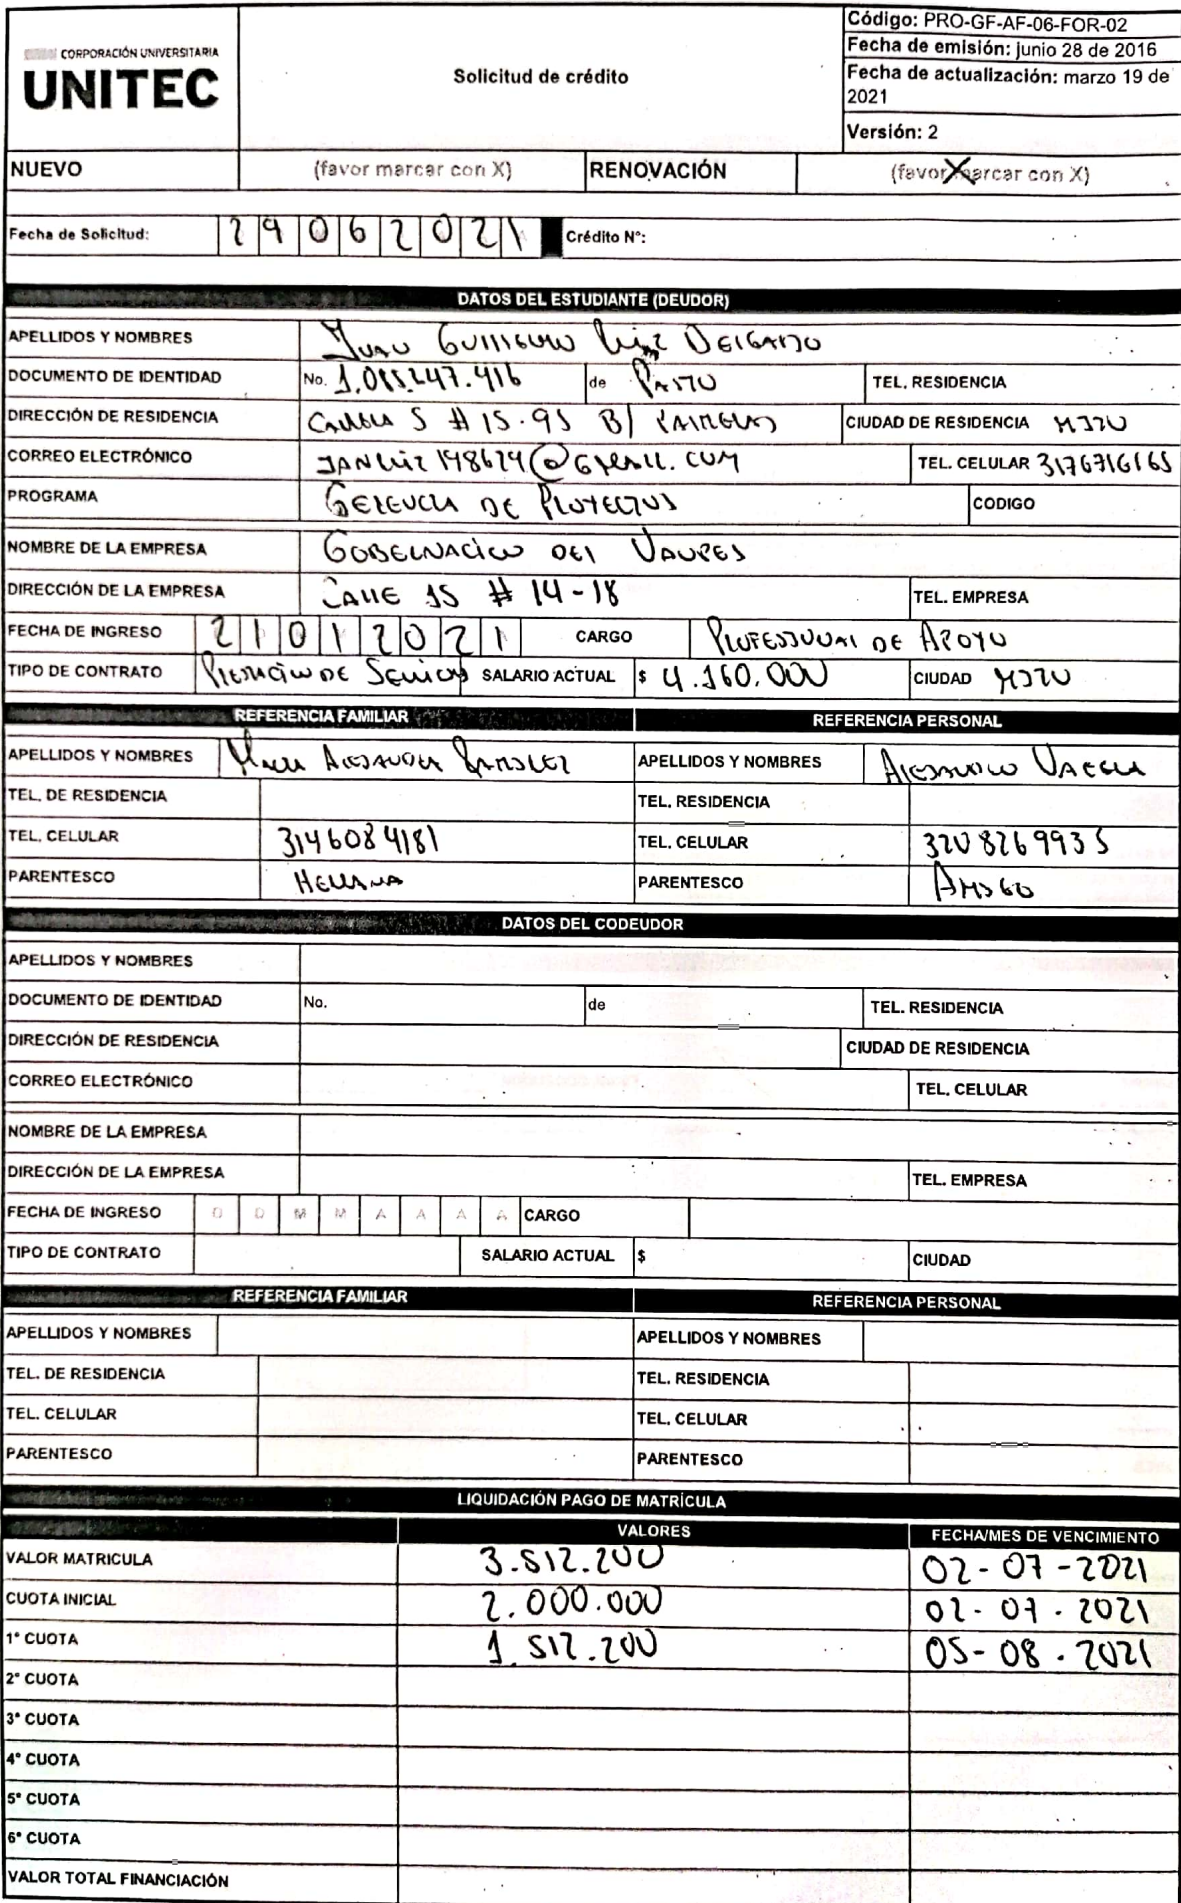 CORPORACIÓN UNIVERSITARIA
UNITEC
Solicitud de crédito
Código: PRO-GF-AF-06-FOR-02
Fecha de emisión: junio 28 de 2016
Fecha de actualización: marzo 19 de
2021
Versión: 2
NUEVO (favor marcar con X) RENOVACIÓN (favor marcar con X) X
Fecha de Solicitud: 29062021 Crédito N°:
DATOS DEL ESTUDIANTE (DEUDOR)
APELLIDOS Y NOMBRES JUAN GUILLERMO RUIZ DELGADO
DOCUMENTO DE IDENTIDAD No. 1.085.247.416 de PASTO TEL. RESIDENCIA
DIRECCIÓN DE RESIDENCIA CARRERA 5 # 15-95 B/ CIUDAD DE RESIDENCIA MITU
CORREO ELECTRÓNICO TEL. CELULAR 3176716165
PROGRAMA GERENCIA DE PROYECTOS CODIGO
NOMBRE DE LA EMPRESA GOBERNACION DEL VAUPES
DIRECCIÓN DE LA EMPRESA CALLE 15 # 14-18 TEL. EMPRESA
FECHA DE INGRESO 21012021 CARGO PROFESIONAL DE APOYO
TIPO DE CONTRATO PRESTACION DE SERVICIOS SALARIO ACTUAL $ 4.160.000 CIUDAD MITU
REFERENCIA FAMILIAR REFERENCIA PERSONAL
APELLIDOS Y NOMBRES ALEJANDRA APELLIDOS Y NOMBRES ALEJANDRO VARELA
TEL. DE RESIDENCIA TEL. RESIDENCIA
TEL. CELULAR 3146084181 TEL. CELULAR 3208269935
PARENTESCO HERMANA PARENTESCO AMIGO
DATOS DEL CODEUDOR
APELLIDOS Y NOMBRES
DOCUMENTO DE IDENTIDAD No. de TEL. RESIDENCIA
DIRECCIÓN DE RESIDENCIA CIUDAD DE RESIDENCIA
CORREO ELECTRÓNICO TEL. CELULAR
NOMBRE DE LA EMPRESA
DIRECCIÓN DE LA EMPRESA TEL. EMPRESA
FECHA DE INGRESO D D M M A A A A CARGO
TIPO DE CONTRATO SALARIO ACTUAL $ CIUDAD
REFERENCIA FAMILIAR REFERENCIA PERSONAL
APELLIDOS Y NOMBRES APELLIDOS Y NOMBRES
TEL. DE RESIDENCIA TEL. RESIDENCIA
TEL. CELULAR TEL. CELULAR
PARENTESCO PARENTESCO
LIQUIDACIÓN PAGO DE MATRÍCULA
VALORES FECHA/MES DE VENCIMIENTO
VALOR MATRICULA 3.512.200 02-07-2021
CUOTA INICIAL 2.000.000 02-07-2021
1° CUOTA 1.512.200 05-08-2021
2° CUOTA
3° CUOTA
4° CUOTA
5° CUOTA
6° CUOTA
VALOR TOTAL FINANCIACIÓN